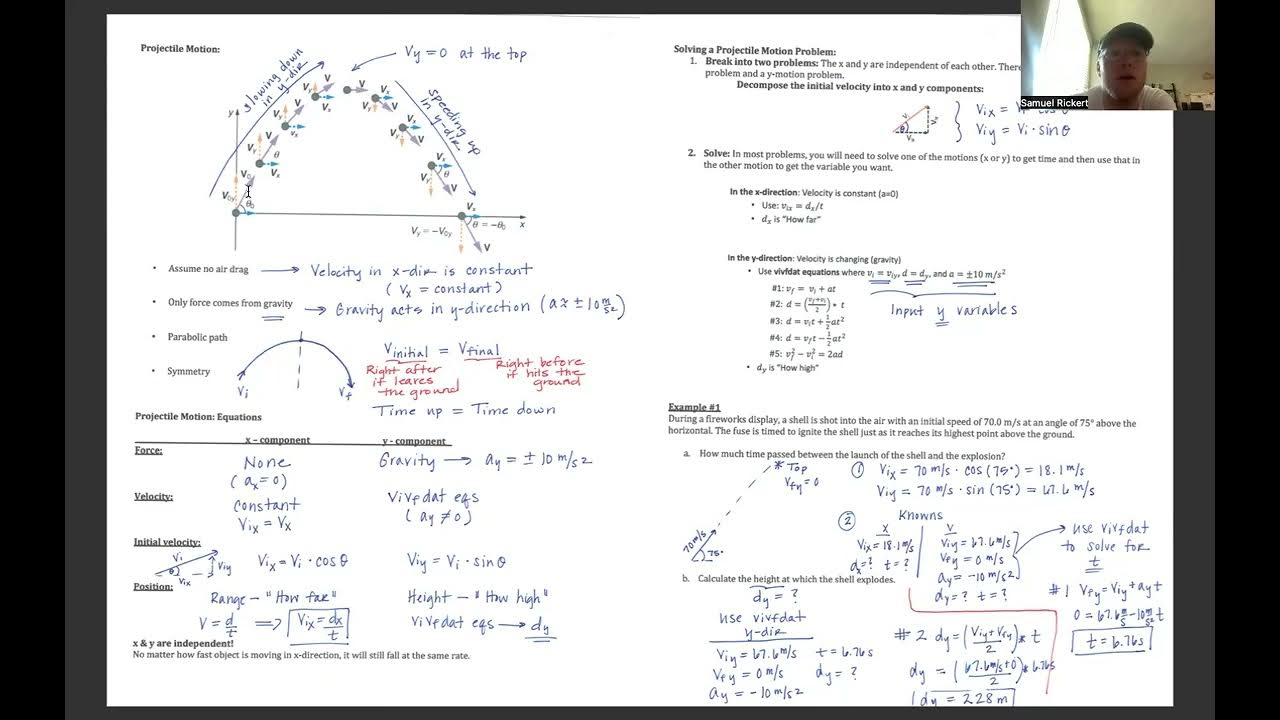 Projectile Motion:
Vy = 0 at the top
slowing down
in y-dir
speeding up
in y-dir
y
V
Vy
Vx
θ
V0
V0y
θ0
Vx
θ = −θ0
x
Vy = −V0y
V
• Assume no air drag → Velocity in x-dir is constant
(Vx = constant)
• Only force comes from gravity → Gravity acts in y-direction (a ≈ ± 10 m/s2)
• Parabolic path
• Symmetry
Vi
Vf
Vinitial = Vfinal
Right after
it leaves
the ground
Right before
it hits the
ground
Time up = Time down
Projectile Motion: Equations
x – component
y - component
Force:
None
(ax = 0)
Gravity → ay = ± 10 m/s2
Velocity:
constant
Vix = Vx
Vivfdat eqs
(ay ≠ 0)
Initial velocity:
Vi
θ
Viy
Vix
Vix = Vi · cosθ
Viy = Vi · sinθ
Position:
Range - "How far"
V = d/t ⟹ Vix = dx/t
Height - "How high"
Vivfdat eqs → dy
x & y are independent!
No matter how fast object is moving in x-direction, it will still fall at the same rate.
Solving a Projectile Motion Problem:
1. Break into two problems: The x and y are independent of each other. There
problem and a y-motion problem.
Decompose the initial velocity into x and y components:
Vix =
Viy = Vi · sinθ
2. Solve: In most problems, you will need to solve one of the motions (x or y) to get time and then use that in
the other motion to get the variable you want.
In the x-direction: Velocity is constant (a=0)
• Use: vix = dx/t
• dx is "How far"
In the y-direction: Velocity is changing (gravity)
• Use vivfdat equations where vi = viy, d = dy, and a = ±10 m/s2
#1: vf = vi + at
#2: d = ((vf+vi)/2) * t
#3: d = vit + 1/2 at2
#4: d = vft − 1/2 at2
#5: vf2 − vi2 = 2ad
• dy is "How high"
Input y variables
Example #1
During a fireworks display, a shell is shot into the air with an initial speed of 70.0 m/s at an angle of 75° above the
horizontal. The fuse is timed to ignite the shell just as it reaches its highest point above the ground.
a. How much time passed between the launch of the shell and the explosion?
* Top
Vfy = 0
70 m/s
75°
① Vix = 70 m/s · cos (75°) = 18.1 m/s
Viy = 70 m/s · sin (75°) = 67.6 m/s
② Knowns
x
Vix = 18.1 m/s
dx = ? t = ?
y
Viy = 67.6 m/s
Vfy = 0 m/s
ay = -10 m/s2
dy = ? t = ?
use vivfdat
to solve for
t
#1 Vfy = Viy + ay t
0 = 67.6 m/s - 10 m/s2 t
t = 6.76 s
b. Calculate the height at which the shell explodes.
dy = ?
use vivfdat
y-dir
Viy = 67.6 m/s t = 6.76 s
Vfy = 0 m/s dy = ?
ay = -10 m/s2
#2 dy = ((Viy + Vfy)/2) * t
dy = ((67.6 m/s + 0)/2) * 6.76s
dy = 228 m
Samuel Rickert